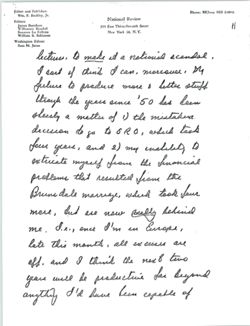 Editor and Publisher
Wm. F. Buckley, Jr.
Editors
James Burnham
Willmoore Kendall
Suzanne La Follette
William S. Schlamm
Washington Editor
Sam M. Jones
National Review
211 East Thirty-Seventh Street
New York 16, N.Y.
lecture, to make it a national scandal.
I sort of think I can, moreover. My
failure to produce more & better stuff
through the years since '50 has been
simply a matter of 1) the mistaken
decision to go to ORO, which took
four years, and 2) my inability to
extricate myself from the financial
problems that resulted from the
Brunsdale marriage, which took four
more, but are now really behind
me. I.e., once I'm in Europe,
late this month, all excuses are
off. and I think the next two
years will be productive far beyond
anything I'd have been capable of